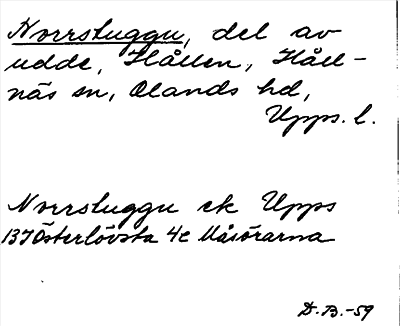 Norrstuggu, del av
udde, Hållen, Håll-
näs sn, Olands hd,
Upps. l.
Norrstuggu ek Upps
137 Österlövsta 4c Måsörarna
D. B. -59